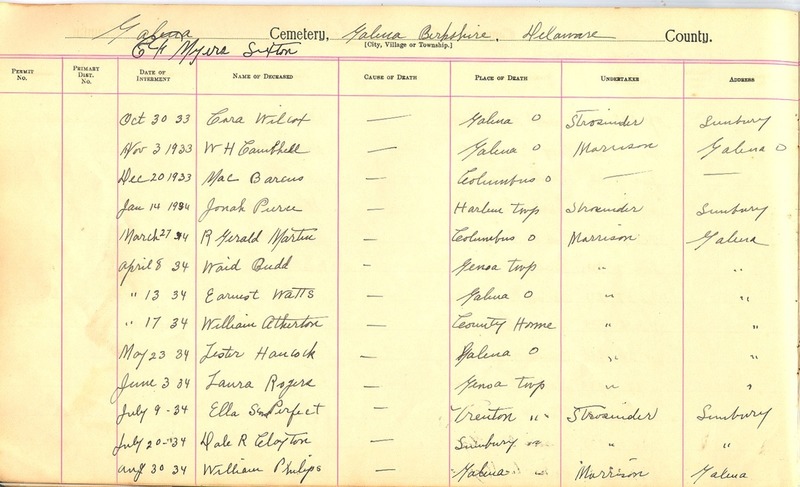 Galena Cemetery, Galena Berkshire, Delaware County.
[City, Village or Township.]
C F Myers Sexton
Permit No. Primary Dist. No. Date of Interment Name of Deceased Cause of Death Place of Death Undertaker Address
Oct 30 33 Cora Wilcox — Galena O Strosnider Sunbury
Nov 3 1933 W H Campbell — Galena O Morrison Galena O
Dec 20 1933 Mac Barcus — Columbus O — —
Jan 14 1934 Jonah Purse — Harlem twp Strosnider Sunbury
March 27 34 R Gerald Martin — Columbus O Morrison Galena
April 8 34 Waid Budd - Genoa twp " "
" 13 34 Earnest Watts — Galena O " "
" 17 34 William Atherton — County Home " "
May 23 34 Lester Hancock — Galena O " "
June 3 34 Laura Rogers — Genoa twp " "
July 9 - 34 Ella SmPerfect — Trenton " Strosnider Sunbury
July 20 - 34 Dale R Clayton — Sunbury " "
Aug 30 34 William Philips — Galena " Morrison Galena